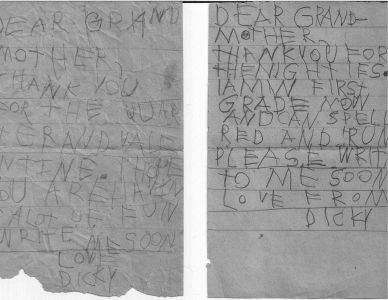 DEAR GRAND
MOTHER
THANK YOU
FOR THE QUAR
TER
TINE. I HOPE
YOU ARE HAVING
ALOT OF FUN
WRITE ME SOON
LOVE
DICKY
DEAR GRAND-
MOTHER,
THANK YOU FOR
THE NIGHTIES
IAM IN FIRST
GRADE NOW
AND CAN SPELL
RED AND RUN
PLEASE WRITE
TO ME SOON
LOVE FROM
DICKY